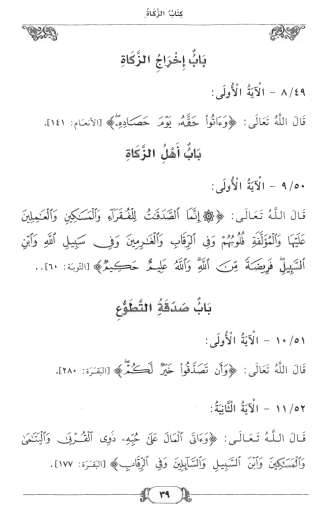 كِتَابُ الزَّكَاةِ
بَابُ إِخْرَاجِ الزَّكَاةِ
٨/٤٩ - الْآيَةُ الْأُولَى:
قَالَ اللَّهُ تَعَالَى: ﴿وَءَاتُوا حَقَّهُۥ يَوْمَ حَصَادِهِۦ﴾ [الأنعام: ١٤١].
بَابُ أَهْلِ الزَّكَاةِ
٩/٥٠ - الْآيَةُ الْأُولَى:
قَالَ اللَّهُ تَعَالَى: ﴿۞ إِنَّمَا الصَّدَقَٰتُ لِلْفُقَرَآءِ وَالْمَسَٰكِينِ وَالْعَٰمِلِينَ
عَلَيْهَا وَالْمُؤَلَّفَةِ قُلُوبُهُمْ وَفِي الرِّقَابِ وَالْغَٰرِمِينَ وَفِي سَبِيلِ اللَّهِ وَابْنِ
السَّبِيلِ فَرِيضَةً مِّنَ اللَّهِ وَاللَّهُ عَلِيمٌ حَكِيمٌ﴾ [التوبة: ٦٠].
بَابُ صَدَقَةِ التَّطَوُّعِ
١٠/٥١ - الْآيَةُ الْأُولَى:
قَالَ اللَّهُ تَعَالَى: ﴿وَأَن تَصَدَّقُوا خَيْرٌ لَّكُمْ﴾ [البقرة: ٢٨٠].
١١/٥٢ - الْآيَةُ الثَّانِيَةُ:
قَالَ اللَّهُ تَعَالَى: ﴿وَءَاتَى الْمَالَ عَلَىٰ حُبِّهِۦ ذَوِي الْقُرْبَىٰ وَالْيَتَٰمَىٰ
وَالْمَسَٰكِينَ وَابْنَ السَّبِيلِ وَالسَّآئِلِينَ وَفِي الرِّقَابِ﴾ [البقرة: ١٧٧].
٣٩